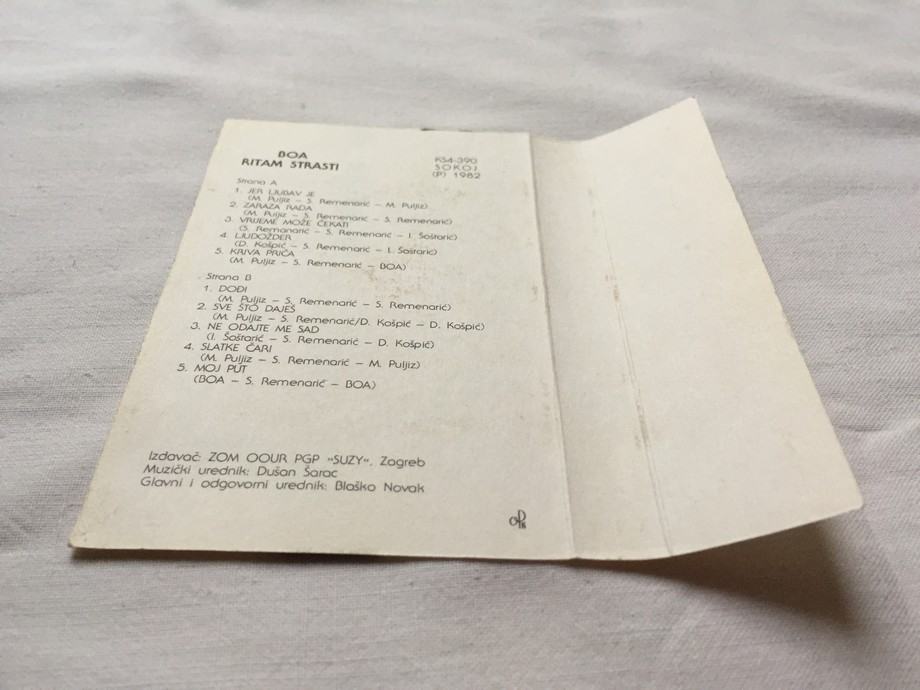 BOA
RITAM STRASTI
KS4-390
SOKOJ
(P) 1982
Strana A
1. JER LJUBAV JE
(M. Puljiz – S. Remenarić – M. Puljiz)
2. ZARAZA RADA
(M. Puljiz – S. Remenarić – S. Remenarić)
3. VRIJEME MOŽE ČEKATI
(S. Remanarić – S. Remenarić – I. Šoštarić)
4. LJUDOŽDER
(D. Košpić – S. Remenarić – I. Šoštarić)
5. KRIVA PRIČA
(M. Puljiz – S. Remenarić – BOA)
Strana B
1. DOĐI
(M. Puljiz – S. Remenarić – S. Remenarić)
2. SVE ŠTO DAJEŠ
(M. Puljiz – S. Remenarić/D. Košpić – D. Košpić)
3. NE ODAJTE ME SAD
(I. Šoštarić – S. Remenarić – D. Košpić)
4. SLATKE ČARI
(M. Puljiz – S. Remenarić – M. Puljiz)
5. MOJ PUT
(BOA – S. Remenarić – BOA)
Izdavač: ZOM OOUR PGP »SUZY«, Zagreb
Muzički urednik: Dušan Šarac
Glavni i odgovorni urednik: Blaško Novak